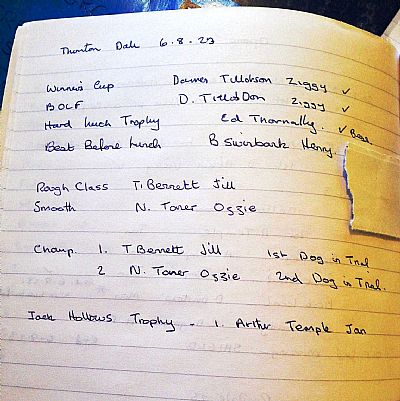 Thornton Dale 6.8.23
Winners Cup Darren Tillotson Ziggy ✓
BOLF D. Tillotson Ziggy ✓
Hard Luck Trophy Ed Thornally. ✓ Best
Best Before Lunch B Swinbank Henry
Rough Class T. Bennett Jill
Smooth N. Toner Ozzie
Champ. 1. T Bennett Jill 1st Dog in Trial
2 N. Toner Ozzie 2nd Dog in Trial.
Jack Hollows Trophy - 1. Arthur Temple Jan